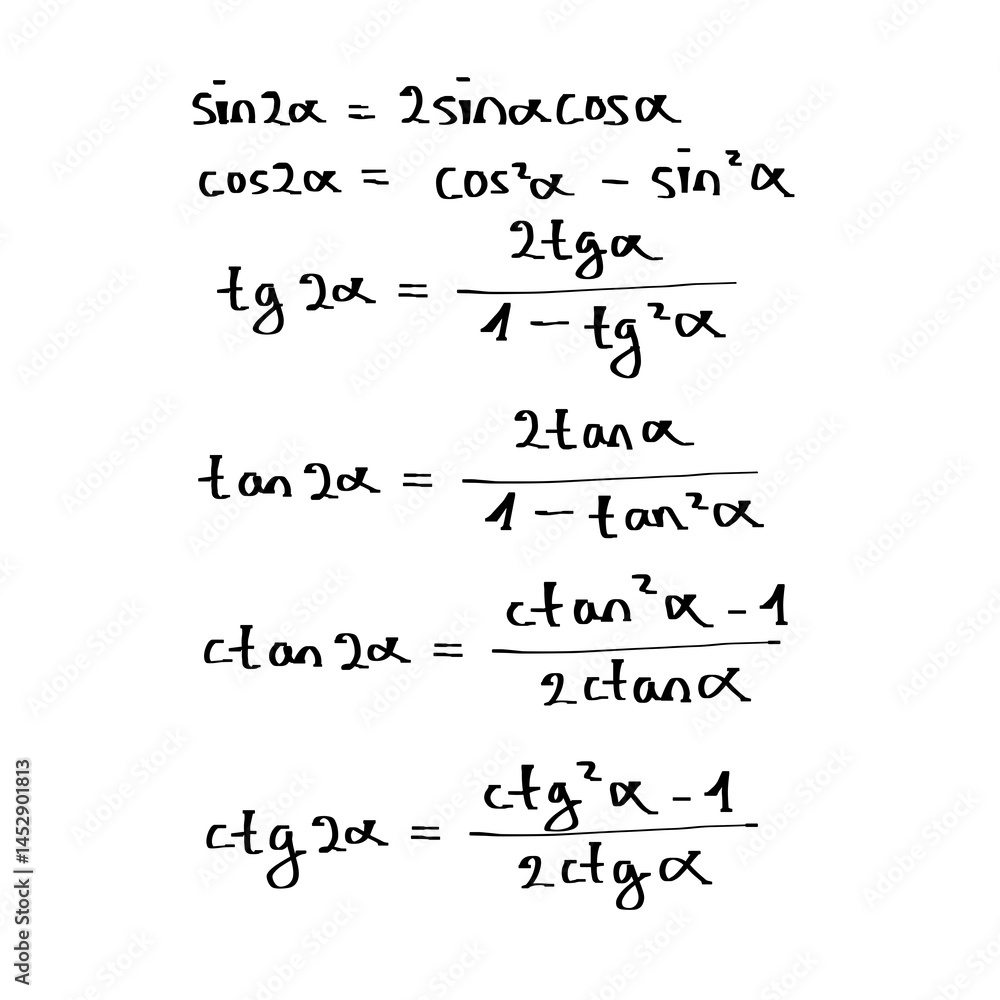 sin2α = 2sinαcosα
cos2α = cos²α − sin²α
tg 2α = 2tgα / 1 − tg²α
tan 2α = 2tanα / 1 − tan²α
ctan 2α = ctan²α - 1 / 2ctanα
ctg 2α = ctg²α - 1 / 2ctgα
Adobe Stock | #1452901813
Adobe Stock